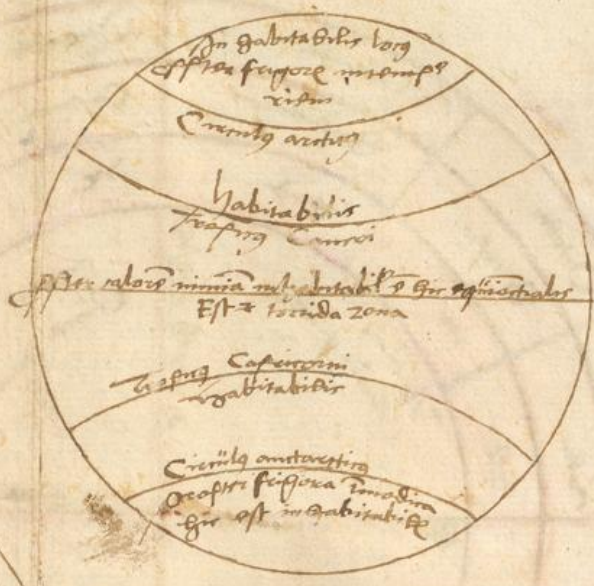 In habitabilis locus
ppter frigorẽ intempe
riem
Circulus arcticus
habitabilis
Tropicus Cancri
ppter calorẽ nimiũ inhabitabil' ẽ hic equinoctialis
Est torrida zona
Tropicus Capricorni
habitabilis
Circulus antarcticus
propter frigora imodica
hic est inhabitabilis